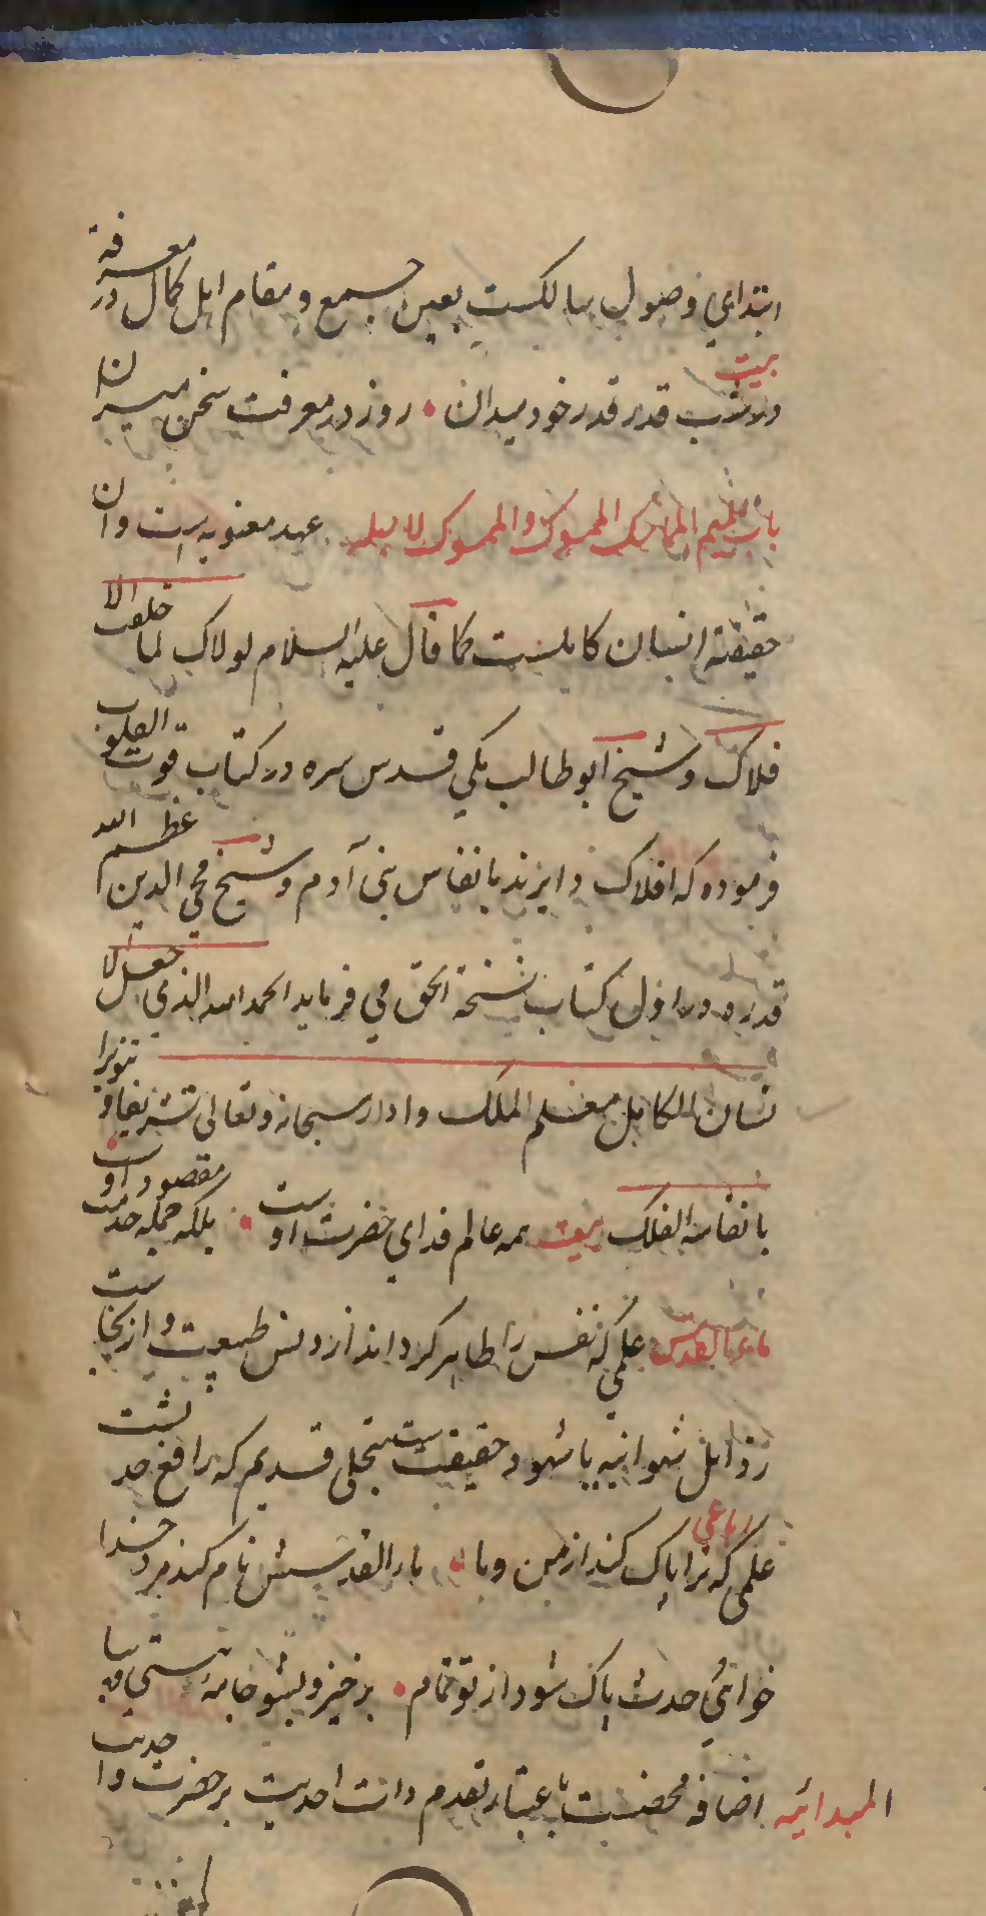 ابتداي وصول سالكست بعين جمع ومقام اهل كمال در معرفة
بيت
در شب قدر قدر خود ميدان روز در معرفت سخن ميران
باب الميم الماسك الممسوك والممسوك لاجله عهد معنويه است وان
حقيقة انسان كاملست كما قال عليه السلام لولاك لما خلقت الا
فلاك وشيخ ابو طالب مكي قدس سره در كتاب قوت القلوب
فرموده كه افلاك دايرند بانفاس بني آدم وشيخ محي الدين اعظم الله
قدره در اول كتاب نسخة الحق مي فرمايد الحمد لله الذي جعل الا
نسان الكامل معلم الملك وادار سبحانه وتعالى تشريفا وتنويرا
بانفاسه الفلك بيت همه عالم فداي حضرت اوست بلكه جمله حدث مقصود اوست
ماء القدس علمي كه نفس را طاهر كرداند از دنس طبيعت وازنجاست
رذايل شهوانيه يا شهود حقيقت بتجلى قديم كه رافع حدثست
رباعي
علمي كه ترا پاك كند از من وما ماء القدسش نام كند مرد خدا
خواهي حدث پاك شود از تو تمام برخيز وبشو جامه هستي بيا
المبدائيه اضافه محضست باعتبار تقدم ذات احديت بر حضرت واحديت